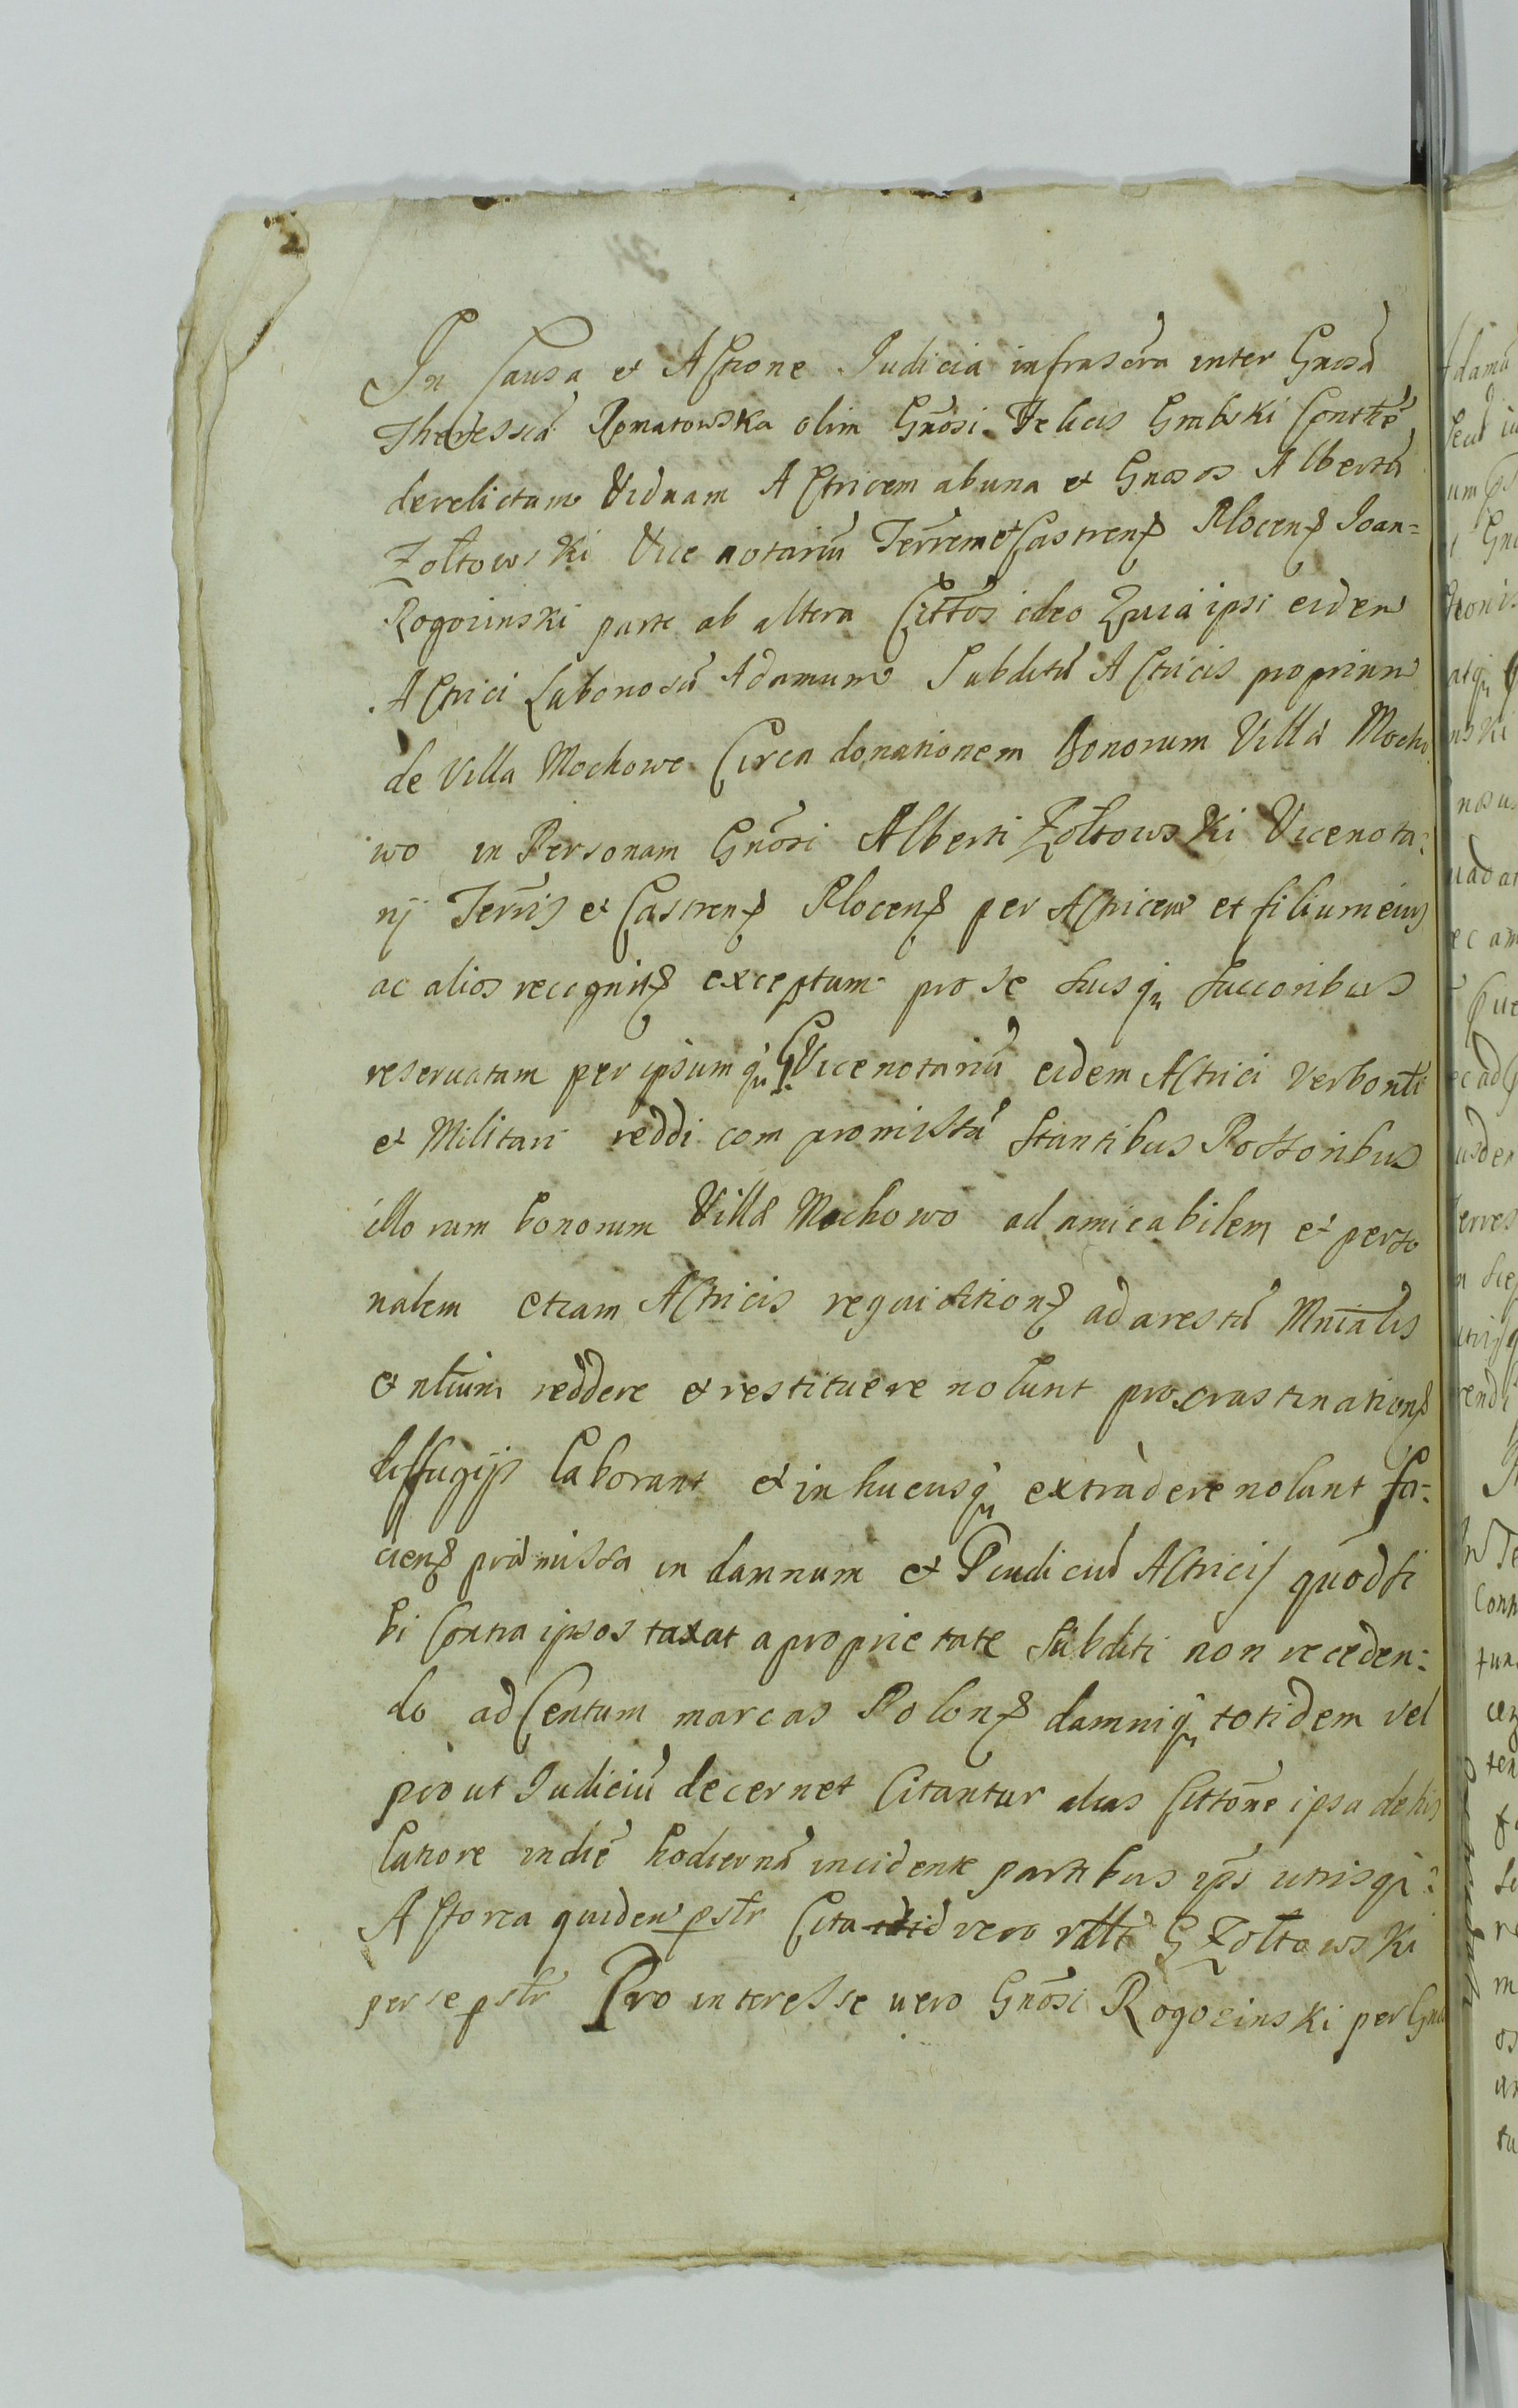 In Causa et Actione Judicia infrascra inter Gnosā
Theressiā Romatowska olim Gnōsi Felicis Gmbski Conthē
derelictam Viduam Actricem ab una et Gnosos Albertū
Zołtowski Vice notariū Terrem et Castrens Plocens Joan=
Rogozinski parte ab altera Cittos ideo Quia ipsi eidem
Actrici Laboriosū Adamum Subditū Actricis proprium
de Villa Mochowo Circa donationem Bonorum Villæ Mocho
wo in Personam Gnōsi Alberti Zołtowski Vicenota:
rij Terris et Castrens Plocens per Actricem et filium eius
ac alios recognits exceptum pro se suisq succoribus
reservatam per ipsumq G Vicenotariū eidem Actrici Verbo nti
et Militari reddi compromissū stantibus Possoribus
illorum bonorum Villæ Mochowo ad amicabilem et perso
nalem etiam Actricis requisitions ad arestū Mnialis
et ntium reddere et restituere nolunt procrastinations
diffugijs laborant et in hucusq extradere nolunt fa=
ciens præmissa in damnum et Piudiciū Actricis quod si
bi Contra ipsos taxat a proprietate Subditi non receden=
do ad Centum marcas Polons damniq totidem vel
prout Judiciū decernet Citantur alias Cittōne ipsa de his
latiore in diē hodiernā incidente partibus ips utrisq
Actorea quidem pstr Cita vero ratti G Zołtowski
per se pstr Pro interesse vero Gnōsi Rogozinski per Gno